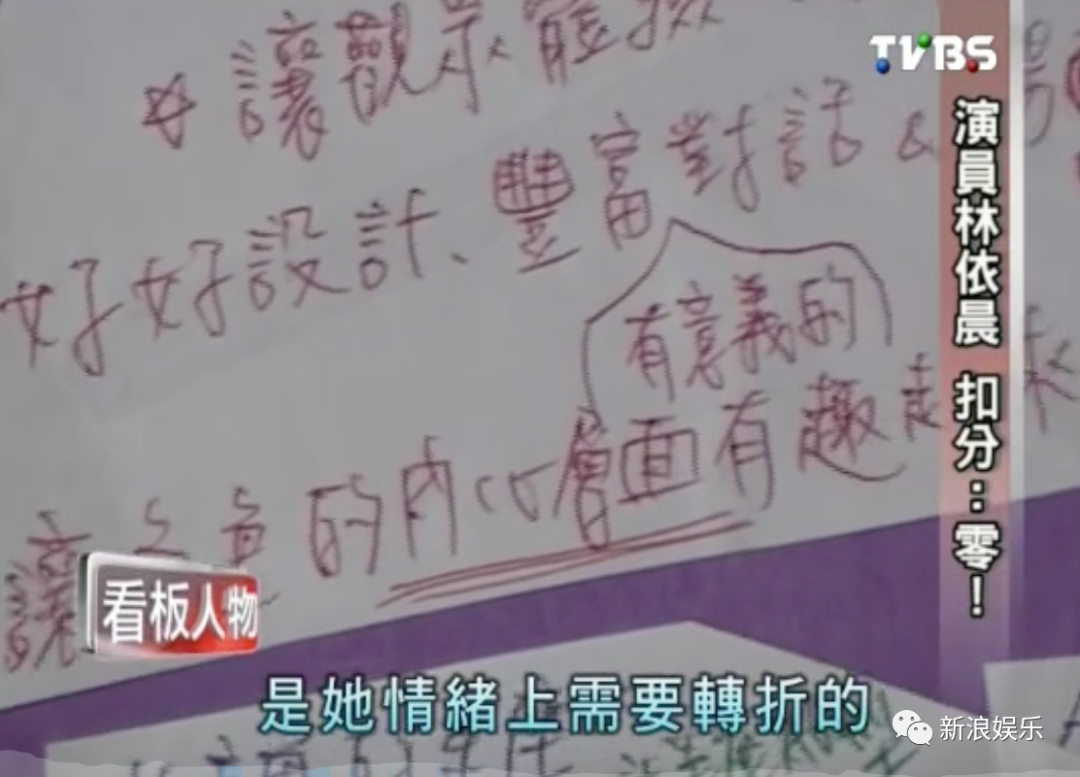 TVBS
演員林依晨 扣分：零！
☆讓觀眾體驗
好好設計、豐富對話&
有意義的
讓 的內心層面有趣起來
看板人物
是她情緒上需要轉折的
新浪娱乐